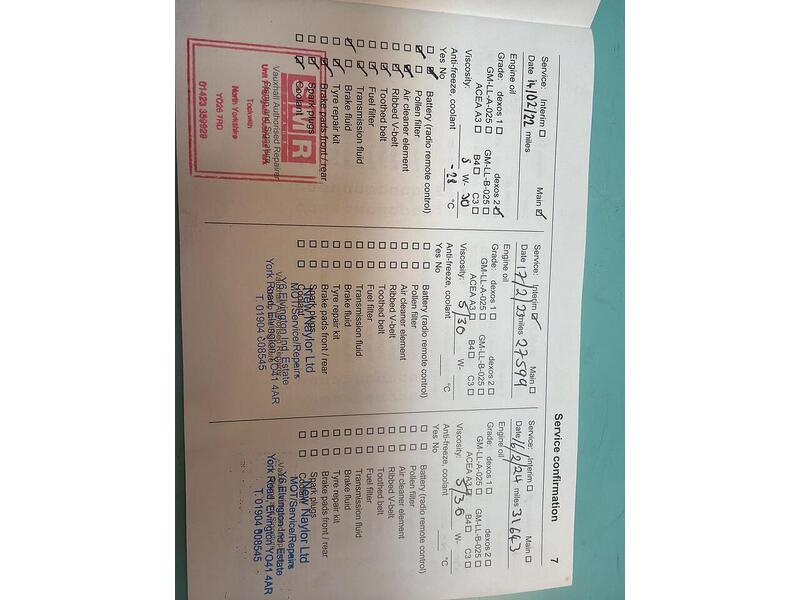 Service confirmation
7
Service: Interim ☐ Main ☑
Date 14/02/22 miles
Engine oil
Grade: dexos 1 ☐ dexos 2 ☑
GM-LL-A-025 ☐ GM-LL-B-025 ☐
ACEA A3 ☐ B4 ☐ C3 ☐
Viscosity: 5 W- 30
Anti-freeze, coolant -28 °C
Yes No
Battery (radio remote control)
Pollen filter
Air cleaner element
Ribbed V-belt
Toothed belt
Fuel filter
Transmission fluid
Brake fluid
Tyre repair kit
Brake pads front / rear
Spark plugs
Coolant
Vauxhall Authorised Repairer
Tockwith
North Yorkshire
YO26 7RD
01423 359929
Service: Interim ☑ Main ☐
Date 17/2/23 miles 27599
Engine oil
Grade: dexos 1 ☐ dexos 2 ☐
GM-LL-A-025 ☐ GM-LL-B-025 ☐
ACEA A3 ☐ B4 ☐ C3 ☐
Viscosity: 5/30 W-
Anti-freeze, coolant °C
Yes No
☐ ☐ Battery (radio remote control)
☐ ☐ Pollen filter
☐ ☐ Air cleaner element
☐ ☐ Ribbed V-belt
☐ ☐ Toothed belt
☐ ☐ Fuel filter
☐ ☐ Transmission fluid
☐ ☐ Brake fluid
☐ ☐ Tyre repair kit
☐ ☐ Brake pads front / rear
☐ ☐ Spark plugs
Naylor Ltd
MOT/Service/Repairs
Elvington Ind. Estate
York Road, Elvington YO41 4AR
T. 01904 608545
Service: Interim ☐ Main ☐
Date 16/2/24 miles 31643
Engine oil
Grade: dexos 1 ☐ dexos 2 ☐
GM-LL-A-025 ☐ GM-LL-B-025 ☐
ACEA A3 B4 ☐ C3 ☐
Viscosity: 5/30 W-
Anti-freeze, coolant °C
Yes No
☐ ☐ Battery (radio remote control)
☐ ☐ Pollen filter
☐ ☐ Air cleaner element
☐ ☐ Ribbed V-belt
☐ ☐ Toothed belt
☐ ☐ Fuel filter
☐ ☐ Transmission fluid
☐ ☐ Brake fluid
☐ ☐ Tyre repair kit
☐ ☐ Brake pads front / rear
☐ ☐ Spark plugs
Naylor Ltd
MOT/Service/Repairs
Elvington Ind. Estate
York Road, Elvington YO41 4AR
T. 01904 608545